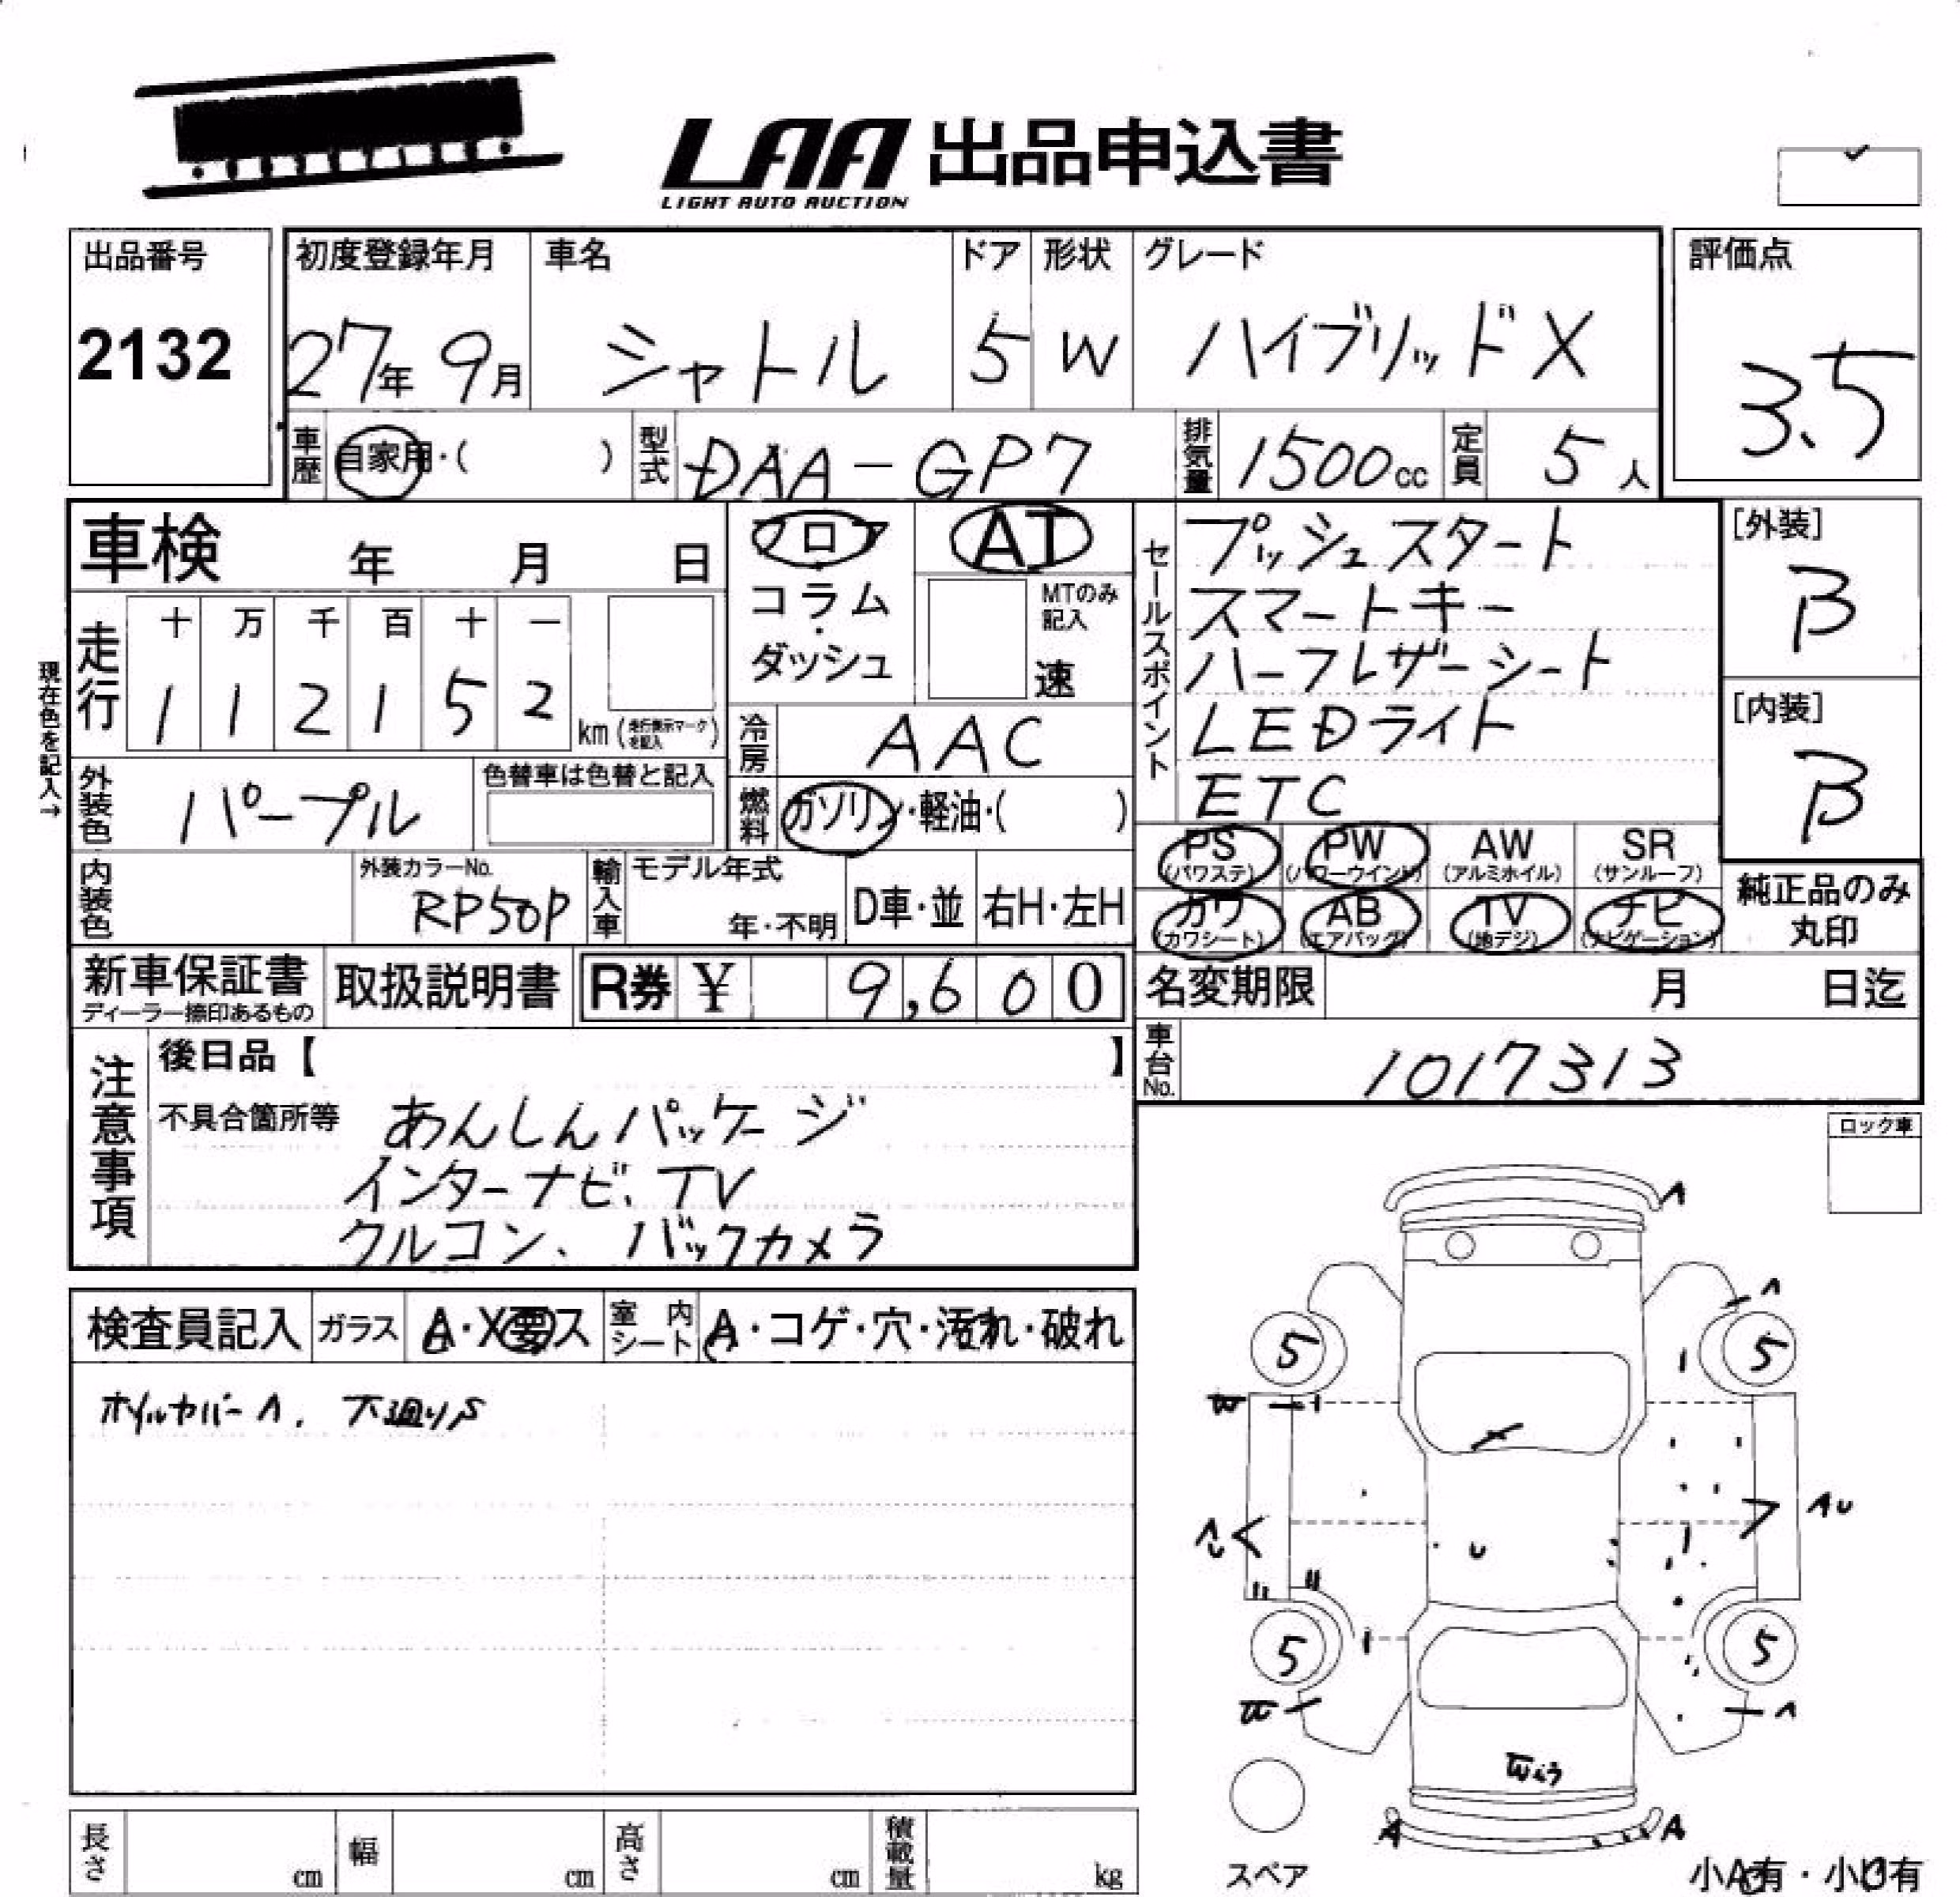 LAA 出品申込書
LIGHT AUTO AUCTION
出品番号
2132
初度登録年月
27年 9月
車名
シャトル
ドア
5
形状
W
グレード
ハイブリッドX
評価点
3.5
車歴
自家用・( )
型式
DAA-GP7
排気量
1500cc
定員
5人
車検 年 月 日
フロア
コラム
・
ダッシュ
AT
MTのみ
記入
速
セールスポイント
プッシュスタート
スマートキー
ハーフレザーシート
LEDライト
ETC
[外装]
B
[内装]
B
現在色を記入→
走行
十 万 千 百 十 一
1 1 2 1 5 2
km (走行表示マークを記入)
冷房
AAC
外装色
パープル
色替車は色替と記入
燃料
ガソリン・軽油・( )
PS
(パワステ)
PW
(パワーウインド)
AW
(アルミホイル)
SR
(サンルーフ)
カワ
(カワシート)
AB
(エアバッグ)
TV
(地デジ)
ナビ
(ナビゲーション)
純正品のみ
丸印
内装色
外装カラーNo.
RP50P
輸入車
モデル年式
年・不明
D車・並
右H・左H
新車保証書
ディーラー捺印あるもの
取扱説明書
R券 ¥ 9,600
名変期限 月 日迄
車台No.
1017313
注意事項
後日品【 】
不具合箇所等
あんしんパッケージ
インターナビ、TV
クルコン、バックカメラ
ロック車
検査員記入
ガラス
A・X要ス
室内
シート
A・コゲ・穴・汚れ・破れ
ホイルカバーA、下廻りS
A
A
5
5
W
AU
5
5
W
A
A
A
スペア
小A有・小U有
長さ
cm
幅
cm
高さ
cm
積載量
kg